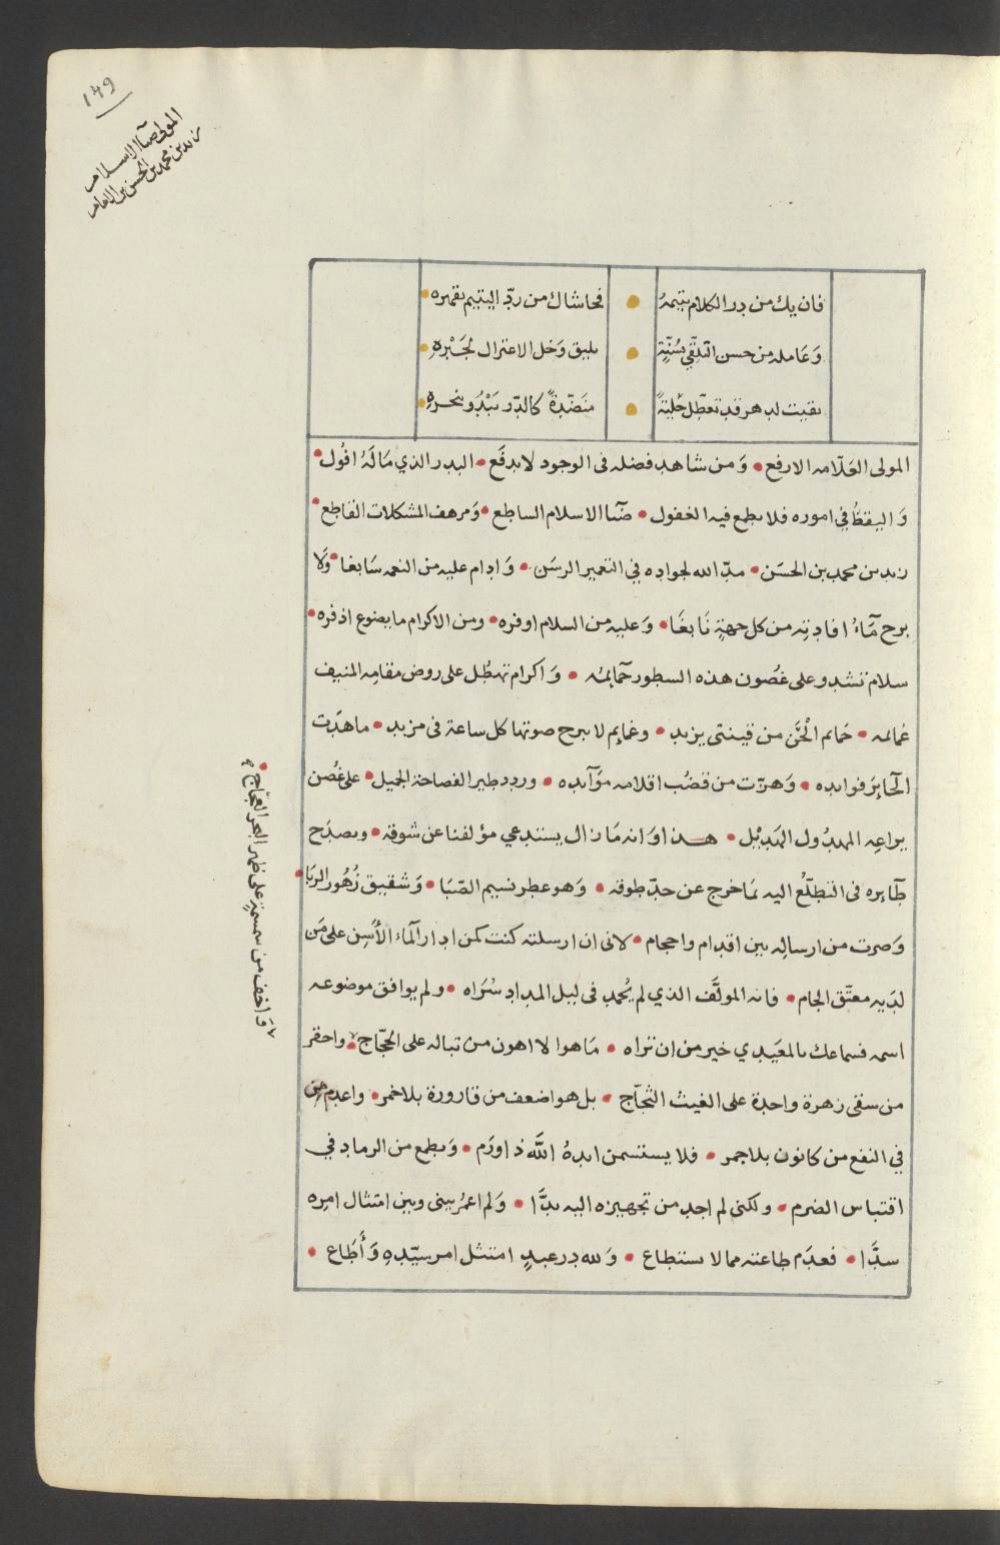 ١٤٩
المولى ضيا الاسلام
زيد بن محمد بن الحسن بن الامام
فان يك من در الكلام يتيمهُ • فحاشاك من ردّ اليتيم بقهره •
وَعامله من حسن التلقّي بسُنّةٍ • يليق وَخل الاعتزال لجَبْرهِ •
بقيت لدهر قد تعطّل حُليةً • منَضّدةً كالدّر تبْدُو بنحرهِ •
المولى العَلاّمه الارفع • وَمن شاهد فضله فى الوجود لا يدفَع • البدر الذي مَا لَهُ افُول •
وَاليقظُ في اموره فلا يطمع فيه الغفول • ضيَآ الاسلام الساطع • وَمرهف المشكلات القاطع •
زيد بن محمد بن الحسَن • مدّ الله لجواده في التعمير الرسَن • وَادام عليه من النعمه سَابغا • وَلا
برح مَآءُ افادتِه من كل جهةٍ نَابغَا • وَعليه من السلام اوفره • ومن الاكرام ما يضوع اذفره •
سلام تشدو على غصُون هذه السطور حمَآئمُه • وَاكرام تهطُل على روض مقامِه المنيف
غمائمه • حَمائم الْحَن من قينتى يزيد • وغمايم لا يبرح صوتها كل ساعة فى مزيد • ما هدَت
الحَآيرَ فوايده • وَهزّت من قضُب اقلامه موَآيده • وردد طير الفصاحة الجميل • على غصُن
يراعِه المهدُول الهَدِيْل • هــذا وَانه مَا زال يستدعي مؤلفنا عن شوقه • ويصدَح
طَآيره فى التطلّع اليه بمَا خرج عن حدّ طوقه • وَهو عطر نسيم الصّبَا • وَشقيق زُهُور الربَا •
وَصرت من ارسالِه بين اقدام واحجام • لانى ان ارسلته كنت كمن ادار المَآء الأسِن على مَن
لدَيه معتّق الجام • فانه المولَّف الذي لم يُحمد فى ليل المداد سُرَاه • ولم يوافق موضوعه
اسمه فسماعك بالمعَيدي خير من ان تراه • مَا هوا لا اهون من تباله على الحَجّاج • واحقر
وَاخف من سمسمةٍ على ظهر البحر العجّاج •
من سقى زهرة واحدة على الغيث الثجّآج • بل هو اضعف من قارورة بلا خمر • واعدم مِن
في النفع من كانون بلا جمر • فلا يستسمن ايدهُ اللَّه ذا ورَم • وَيطمع من الرماد في
اقتباس الضرم • ولكنى لم اجد من تجهيزه اليه بدَّا • وَلم اعمُر بينى وبين امتثال امره
سدَّا • فعدَم طاعته مما لا يستطاع • وَلله در عبدٍ امتثل امر سيّدهِ وَأطَاع •